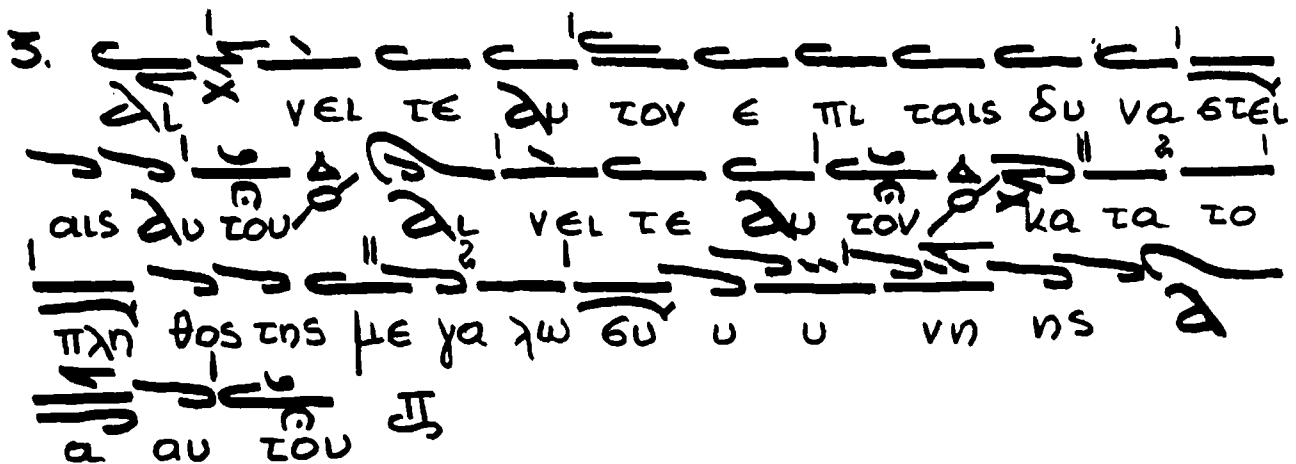 3. αι νει τε αυ τον ε πι ταις δυ να στει
αις αυ του αι νει τε αυ τον κα τα το
πλη θος της με γα λω συ υ υ νη ης α
α αυ του